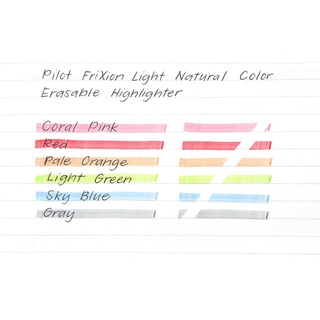 Pilot FriXion Light Natural Color
Erasable Highlighter
Coral Pink
Red
Pale Orange
Light Green
Sky Blue
Gray